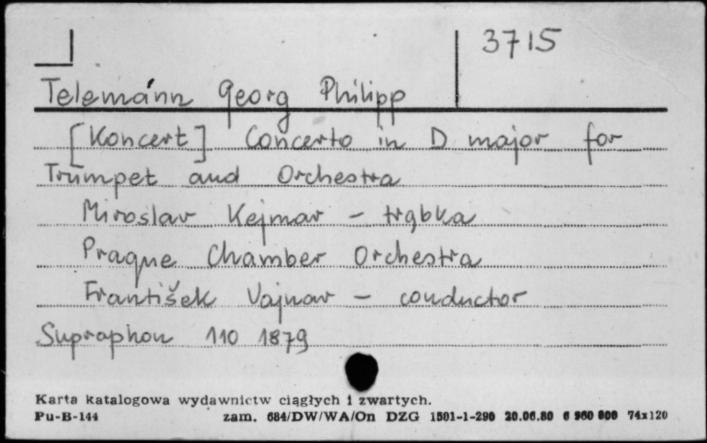 3715
Telemann Georg Philipp
[Koncert] Concerto in D major for
Trumpet and Orchestra
Miroslav Kejmar - trąbka
Prague Chamber Orchestra
František Vajnar - conductor
Supraphon 110 1879
Karta katalogowa wydawnictw ciągłych i zwartych.
Pu-B-144 zam. 684/DW/WA/On DZG 1501-1-290 20.06.80 6 960 000 74x120